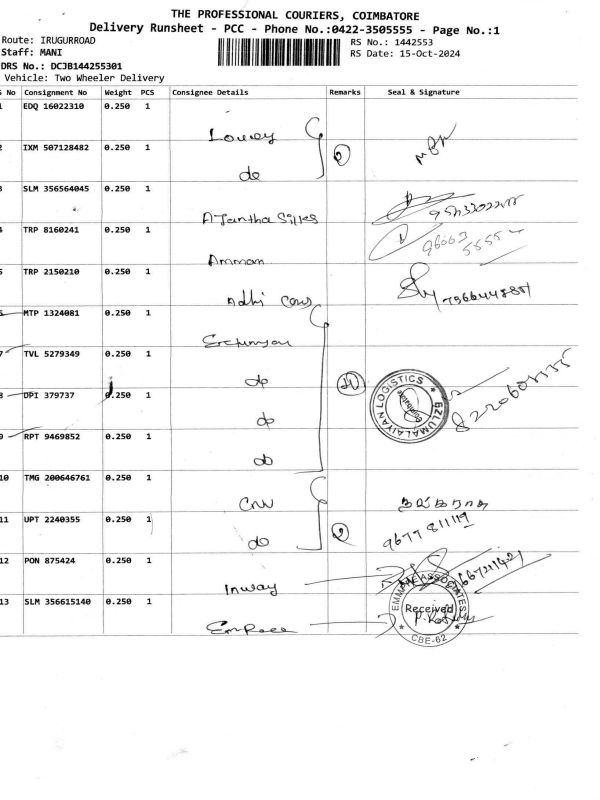 THE PROFESSIONAL COURIERS, COIMBATORE
Delivery Runsheet - PCC - Phone No.:0422-3505555 - Page No.:1
Route: IRUGURROAD
RS No.: 1442553
Staff: MANI
RS Date: 15-Oct-2024
DRS No.: DCJB144255301
Vehicle: Two Wheeler Delivery
S No Consignment No Weight PCS Consignee Details Remarks Seal & Signature
1 EDQ 16022310 0.250 1
2 IXM 507128482 0.250 1 do 2
3 SLM 356564045 0.250 1 AJantha Silks
4 TRP 8160241 0.250 1 Ammam
5 TRP 2150210 0.250 1 Adhi
6 MTP 1324081 0.250 1
7 TVL 5279349 0.250 1 do
8 DPI 379737 0.250 1 do
9 RPT 9469852 0.250 1 do
EZLUMALAIYAN LOGISTICS
Coimbatore
10 TMG 200646761 0.250 1
11 UPT 2240355 0.250 1 do 2 9677811119
12 PON 875424 0.250 1 Inway
13 SLM 356615140 0.250 1
ASSOCIATES
Received
CBE-62